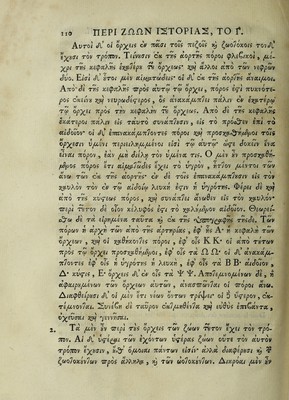 110 ΠΕΡΙ ΖΩΩΝ ΙΣΤΟΡΙΑΣ, ΤΟ Γ.
Αὐτοὶ δ' οἱ ὄρχεις ἐν πᾶσι τοῖς πεζοῖς καὶ ζωοτόκοις τόνδ'
ἔχουσι τὸν τρόπον. Τείνουσιν ἐκ τῆς ἀορτῆς πόροι φλεβικοί, μέ-
χρι τῆς κεφαλῆς ἑκατέρου τοῦ ὄρχεως· καὶ ἄλλοι ἀπὸ τῶν νεφρῶν
δύο. Εἰσὶ δ' οὗτοι μὲν αἱματώδεις· οἱ δ' ἐκ τῆς ἀορτῆς ἄναιμοι.
Ἀπὸ δὲ τῆς κεφαλῆς πρὸς αὐτῷ τῷ ὄρχει, πόρος ἐστὶ πυκνότε-
ρος ἐκείνου καὶ νευρωδέστερος, ὃς ἀνακάμπτει πάλιν ἐν ἑκατέρῳ
τῷ ὄρχει πρὸς τὴν κεφαλὴν τοῦ ὄρχεως. Ἀπὸ δὲ τῆς κεφαλῆς
ἑκάτεροι πάλιν εἰς ταὐτὸ συνάπτουσιν, εἰς τὸ πρόσθεν ἐπὶ τὸ
αἰδοῖον· οἱ δ' ἐπανακάμπτοντες πόροι καὶ προσκαθήμενοι τοῖς
ὄρχεσιν ὑμένι περιειλημμένοι εἰσὶ τῷ αὐτῷ· ὥστε δοκεῖν ἕνα
εἶναι πόρον, ἐὰν μὴ διέλῃ τὸν ὑμένα τις. Ὁ μὲν οὖν προσκαθή-
μενος πόρος ἔτι αἱματῶδες ἔχει τὸ ὑγρόν, ἧττον μέντοι τῶν
ἄνω τῶν ἐκ τῆς ἀορτῆς· ἐν δὲ τοῖς ἐπανακάμπτουσιν εἰς τὸν
καυλὸν τὸν ἐν τῷ αἰδοίῳ λευκή ἐστιν ἡ ὑγρότης. Φέρει δὲ καὶ
ἀπὸ τῆς κύστεως πόρος, καὶ συνάπτει ἄνωθεν εἰς τὸν καυλόν·
περὶ τοῦτον δὲ οἷον κέλυφός ἐστι τὸ καλούμενον αἰδοῖον. Θεωρεί-
σθω δὲ τὰ εἰρημένα ταῦτα καὶ ἐκ τῆς ὑπογραφῆς τῆσδε. Τῶν
πόρων ἡ ἀρχὴ τῶν ἀπὸ τῆς ἀρτηρίας, ἐφ' ᾗ Α· ἡ κεφαλὴ τῶν
ὄρχεων, καὶ οἱ καθήκοντες πόροι, ἐφ' οἷς ΚΚ· οἱ ἀπὸ τούτων
πρὸς τῷ ὄρχει προσκαθήμενοι, ἐφ' οἷς τὰ ΩΩ· οἱ δ' ἀνακάμ-
πτοντες ἐφ' οἷς ἡ ὑγρότης ἡ λευκή, ἐφ' οἷς τὰ ΒΒ· αἰδοῖον
Δ· κύστις, Ε· ὄρχεις δ' ἐν οἷς τὰ ΨΨ. Ἀποτεμνομένων δὲ, ἢ
ἀφαιρουμένων τῶν ὄρχεων αὐτῶν, ἀνασπῶνται οἱ πόροι ἄνω.
Διαφθείρουσι δ' οἱ μὲν ἔτι νέων ὄντων τρίψει· οἱ δ' ὕστερον, ἐκ-
τέμνονται. Συνέβη δὲ ταῦρον ἐκτμηθέντα καὶ εὐθὺς ἐπιβάντα,
ὀχεῦσαι καὶ γεννῆσαι.
2. Τὰ μὲν οὖν περὶ τοὺς ὄρχεις τῶν ζώων τοῦτον ἔχει τὸν τρό-
πον. Αἱ δ' ὑστέραι τῶν ἐχόντων ὑστέρας ζώων οὔτε τὸν αὐτὸν
τρόπον ἔχουσιν, οὔθ' ὅμοιαι πάντων εἰσίν· ἀλλὰ διαφέρουσι καὶ τῶν
ζωοτοκούντων πρὸς ἄλληλα, καὶ τῶν ᾠοτοκούντων. Δίκροαι μὲν οὖν